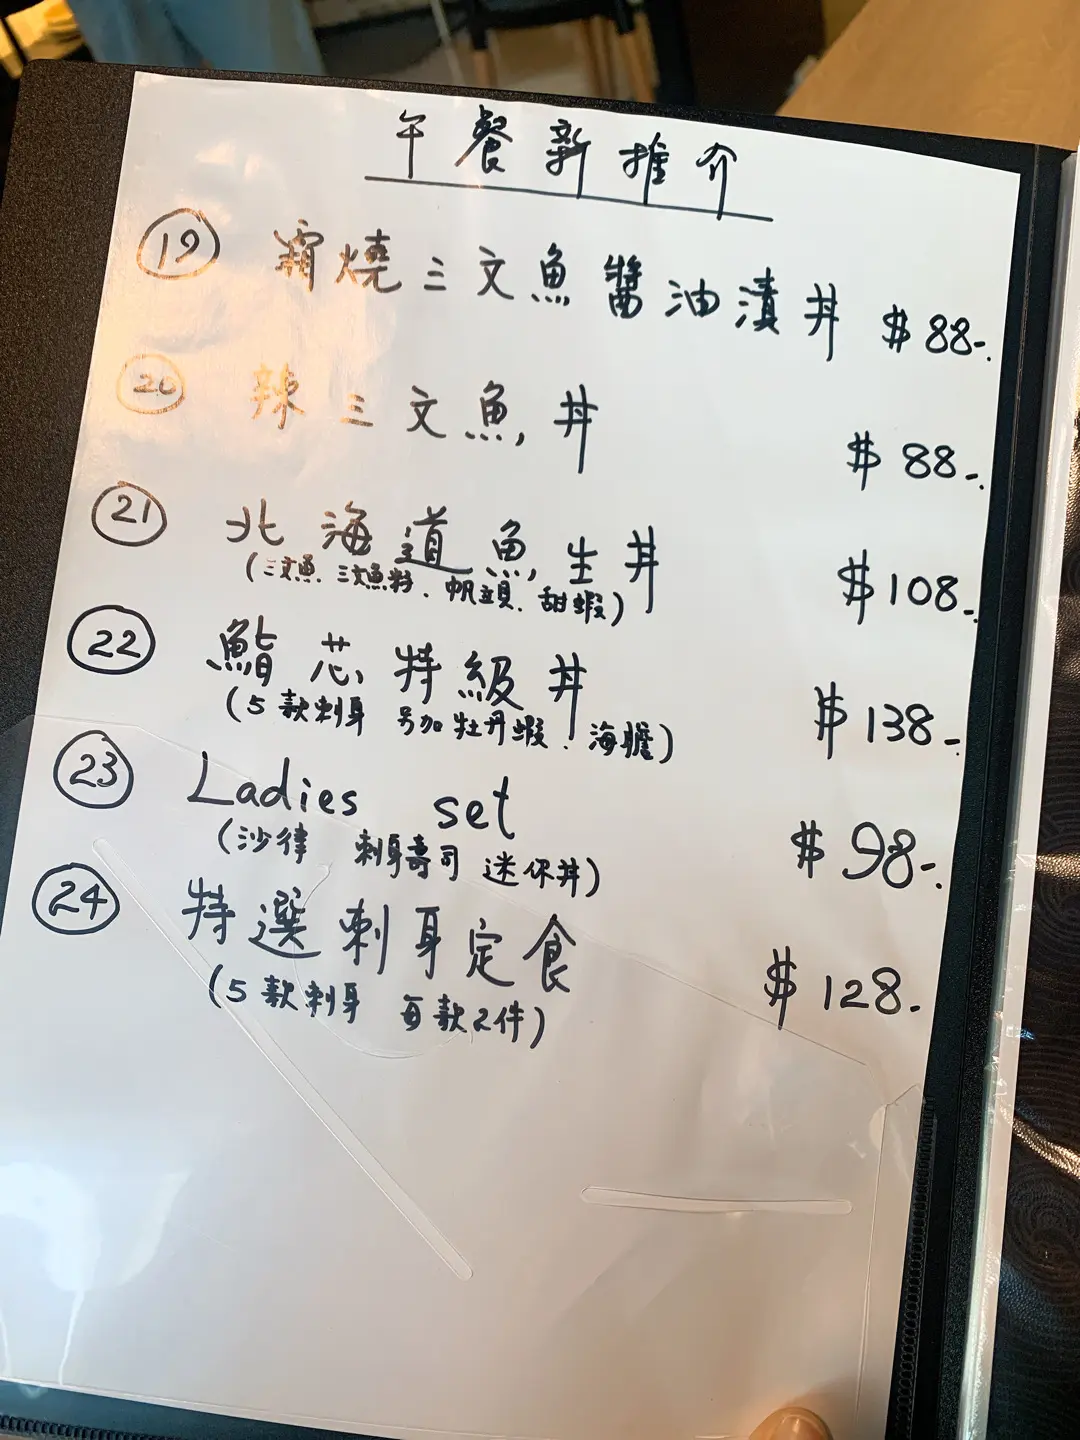 午餐新推介
19 霜燒三文魚醬油漬丼 $88-.
20 辣三文魚丼 $88-.
21 北海道魚生丼 $108-.
(三文魚.三文魚籽.帆立貝.甜蝦)
22 鮨芯特級丼 $138-.
(5款刺身 另加牡丹蝦.海膽)
23 Ladies set $98-.
(沙律 刺身壽司 迷你丼)
24 特選刺身定食 $128-.
(5款刺身 每款2件)